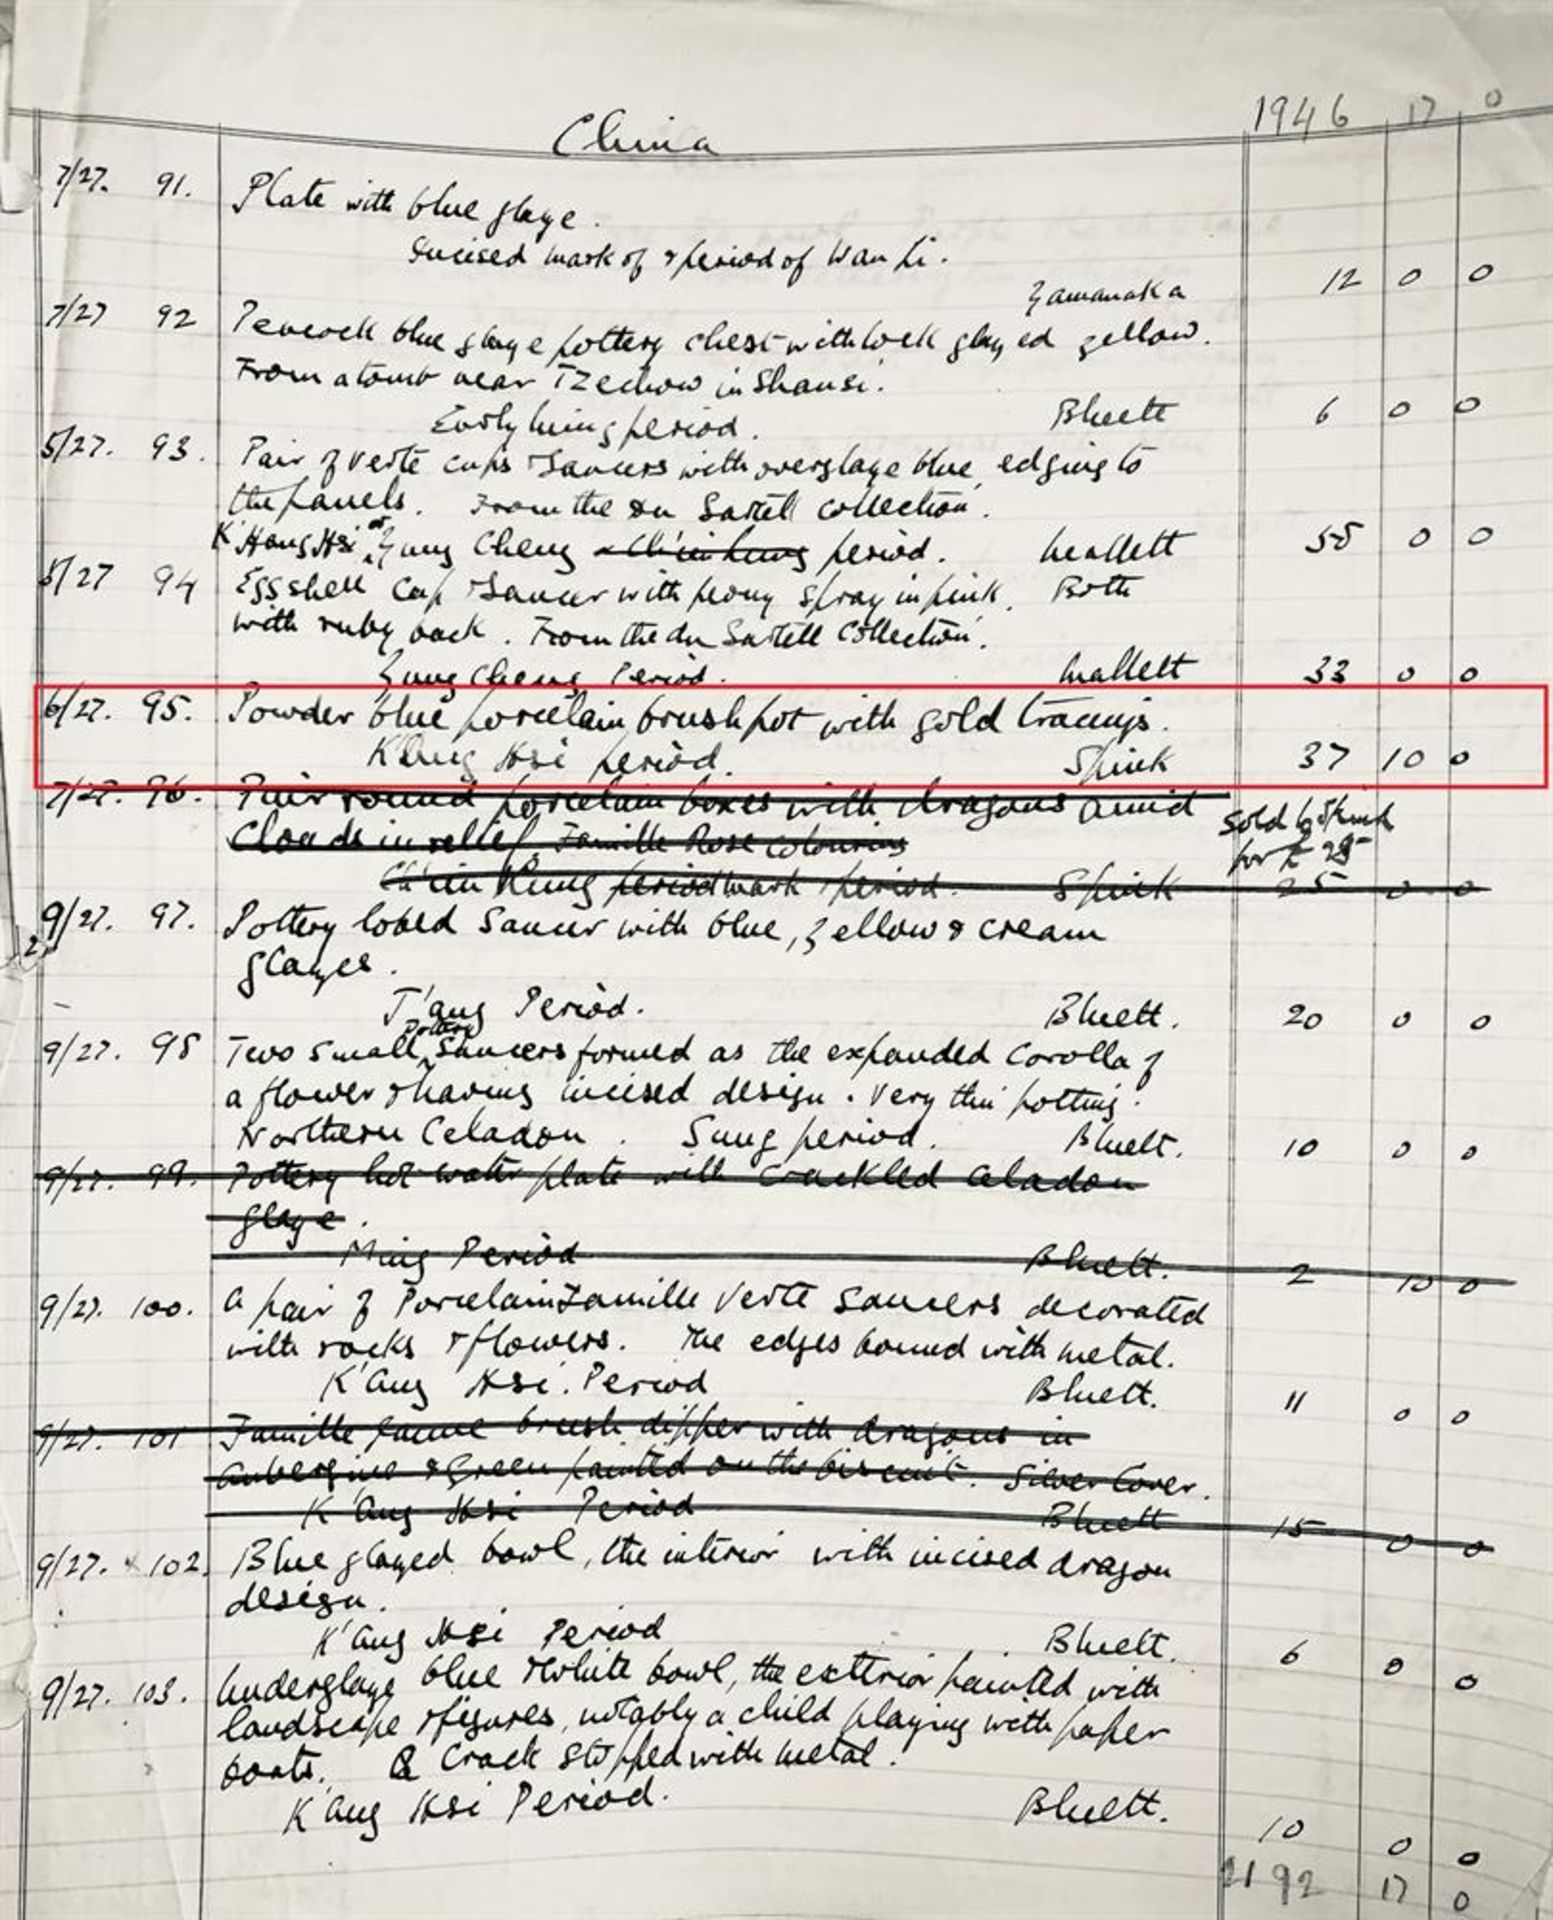 1946 17 0
China
7/27. 91. Plate with blue glaze.
Incised mark of & period of Wan Li.
Yamanaka 12 0 0
7/27 92 Peacock blue glaze pottery chest with lock glazed yellow.
From a tomb near Tzechow in Shansi.
Early Ming period. Bluett 6 0 0
5/27. 93. Pair of verte cups & saucers with overglaze blue edging to
the panels. From the du Sartell collection.
K'Hang Hsi or Yung Cheng & Ch'ien Lung period. Mallett 55 0 0
5/27 94 Eggshell cup & saucer with peony spray in pink, Both
with ruby back. From the du Sartell Collection.
Yung Cheng Period. Mallett 33 0 0
6/27. 95. Powder blue porcelain brush pot with gold tracings.
K'ang Hsi period. Spink 37 10 0
7/27. 96. Pair round porcelain boxes with dragons amid
Clouds in relief. Famille Rose colouring
Sold to Spink
for £ 25
Ch'ien Lung period mark & period. Spink 25 0 0
9/27. 97. Pottery lobed saucer with blue, yellow & cream
glazes.
T'ang Period. Bluett. 20 0 0
9/27. 98 Two small Pottery saucers formed as the expanded corolla of
a flower & having incised design. Very thin potting.
Northern Celadon. Sung period. Bluett. 10 0 0
9/27. 99. Pottery hot water plate with crackled celadon
glaze.
Ming Period Bluett. 2 10 0
9/27. 100. A pair of Porcelain Famille Verte saucers decorated
with rocks & flowers. The edges bound with metal.
K'ang Hsi. Period Bluett. 11 0 0
9/27. 101 Famille jaune brush dipper with dragons in
aubergine & green painted on the biscuit. Silver Cover.
K'ang Hsi Period Bluett 15 0 0
9/27. x 102. Blue glazed bowl, the interior with incised dragon
design.
K'ang Hsi Period Bluett. 6 0 0
9/27. 103. Underglaze blue & white bowl, the exterior painted with
landscape & figures, notably a child playing with paper
boats. A crack stopped with metal.
K'ang Hsi Period. Bluett. 10 0 0
2192 17 0